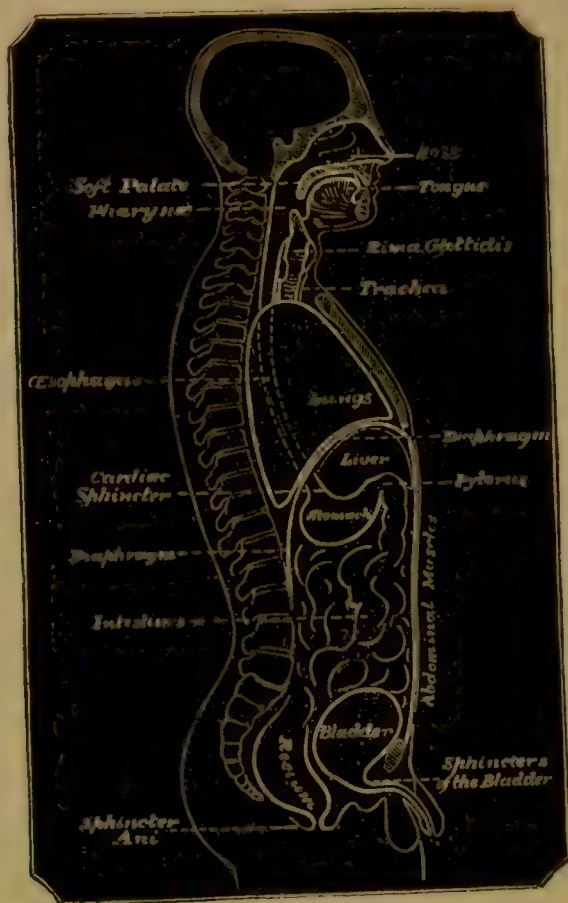 Nose
Soft Palate
Tongue
Pharynx
Rima Glottidis
Trachea
Œsophagus
Lungs
Diaphragm
Liver
Cardiac
Sphincter
Pylorus
Stomach
Diaphragm
Intestines
Abdominal Muscles
Bladder
Rectum
Sphincters
of the Bladder
Sphincter
Ani